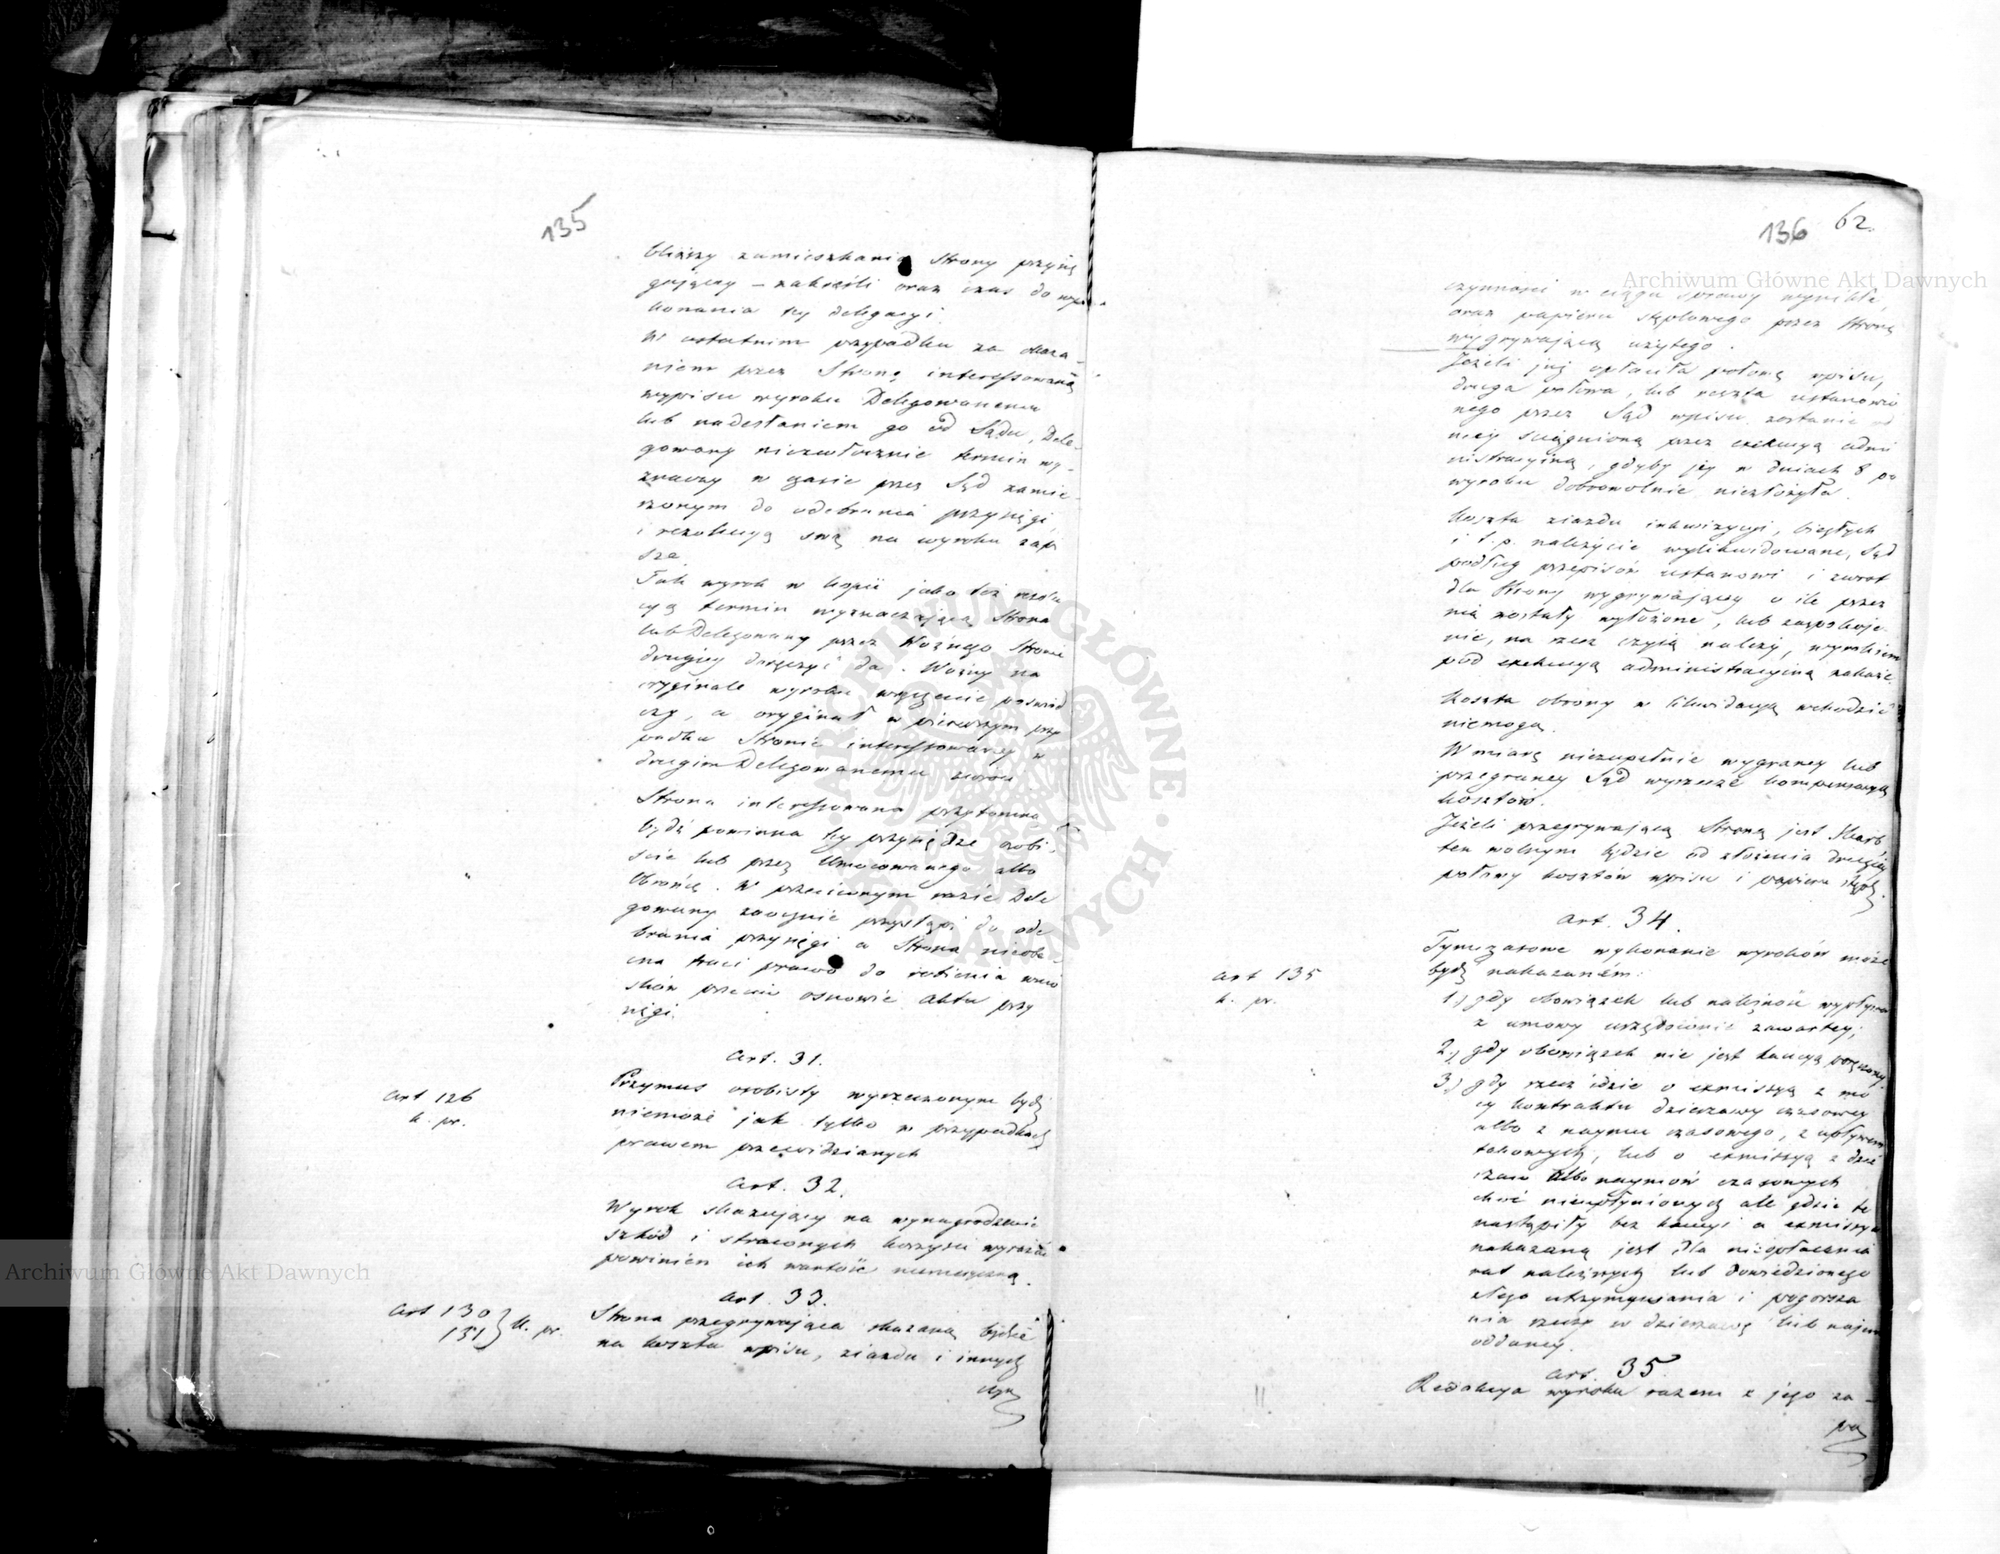 135
bliższy zamieszkania Strony przysię
gającey – zakreśli oraz czas do wy
konania tey delegacyi.
W ostatnim przypadku za okaza-
niem przez Stronę interessowaną
wypisu wyroku Delegowanemu
lub nadesłaniem go od Sądu, Dele-
gowany niezwłocznie termin wy-
znaczy w czasie przez Sąd zamie-
rzonym do odebrania przysięgi,
i rezolucyą swą na wyroku zapi
sze.
Tak wyrok w kopii jako też rezolu
cyą termin wyznaczającą Strona
lub Delegowany przez Woźnego Stronie
drugiey doręczyć da. Woźny na
oryginale wyroku wręczenie poświad
czy, a oryginał w pierwszym przy
padku Stronie interessowaney w
drugim Delegowanemu zwróci
Strona interessowana przytomną
bydź powinna tey przysiędze osobi-
ście lub przez Umocowanego albo
Obrońcę. W przeciwnym razie Dele
gowany zaocznie przystąpi do ode
brania przysięgi a Strona nieobe-
cna traci prawo do robienia wnio
sków przeciw osnowie Aktu przy
sięgi.
Art. 31.
Art 126
k. pr.
Przymus osobisty wyrzeczonym bydź
niemoże jak tylko w przypadkach
prawem przewidzianych
Art. 32.
Wyrok skazujący na wynagrodzenie
szkód i straconych korzyści wyrażać
powinien ich wartość numeryczną.
Art. 33.
Art 130
131 } k. pr.
Strona przegrywająca skazaną będzie
na koszta wpisu, ziazdu i innych
czyn
136 62.
czynności w ciągu sprawy wynikłe
oraz papieru stęplowego przez Stronę
wygrywającą użytego.
Jeżeli już opłaciła połowę wpisu,
druga połowa, lub reszta ustanowio
nego przez Sąd wpisu zostanie od
niey ściągnioną przez exekucyą admi
nistracyiną, gdyby jey w dniach 8 po
wyroku dobrowolnie niezłożyła.
Koszta ziazdu inkwizycyi, biegłych
i t. p. należycie wylikwidowane, Sąd
podług przepisów ustanowi i zwrot
dla Strony wygrywającey o ile przez
nią zostały wyłożone, lub zaspokoje-
nie, na rzecz czyią należy, wyrokiem
pod exekucyą administracyiną nakaże.
Koszta obrony w likwidacyą wchodzić
niemogą.
W miarę niezupełnie wygraney lub
przegraney Sąd wyrzecze kompensacyą
kosztów.
Jeżeli przegrywającą Stroną jest Skarb
ten wolnym będzie od złożenia drugiey
połowy kosztów wpisu i papieru stępl.
Art. 34.
Art 135
k. pr.
Tymczasowe wykonanie wyroków może
bydź nakazaném:
1.) gdy obowiązek lub należność wypływa
z umowy urzędownie zawartey;
2.) gdy obowiązek nie jest kaucyą poręczony.
3.) gdy rzecz idzie o exmissyą z mo
cy kontraktu dzierzawy czasowey
albo z naymu czasowego, z upływem
takowych, lub o exmissyą z dzier
zaw albo naymów czasowych
choć nieupłynionych ale gdzie te
nastąpiły bez kaucyi a exmissya
nakazaną jest dla nieopłacenia
rat należnych lub dowiedzionego
złego utrzymywania i pogorsza
nia rzeczy w dzierzawę lub najem
oddaney.
Art. 35.
Redakcya wyroku razem z jego za-
pa
Archiwum Główne Akt Dawnych
Archiwum Główne Akt Dawnych
ARCHIWUM GŁÓWNE
AKT DAWNYCH